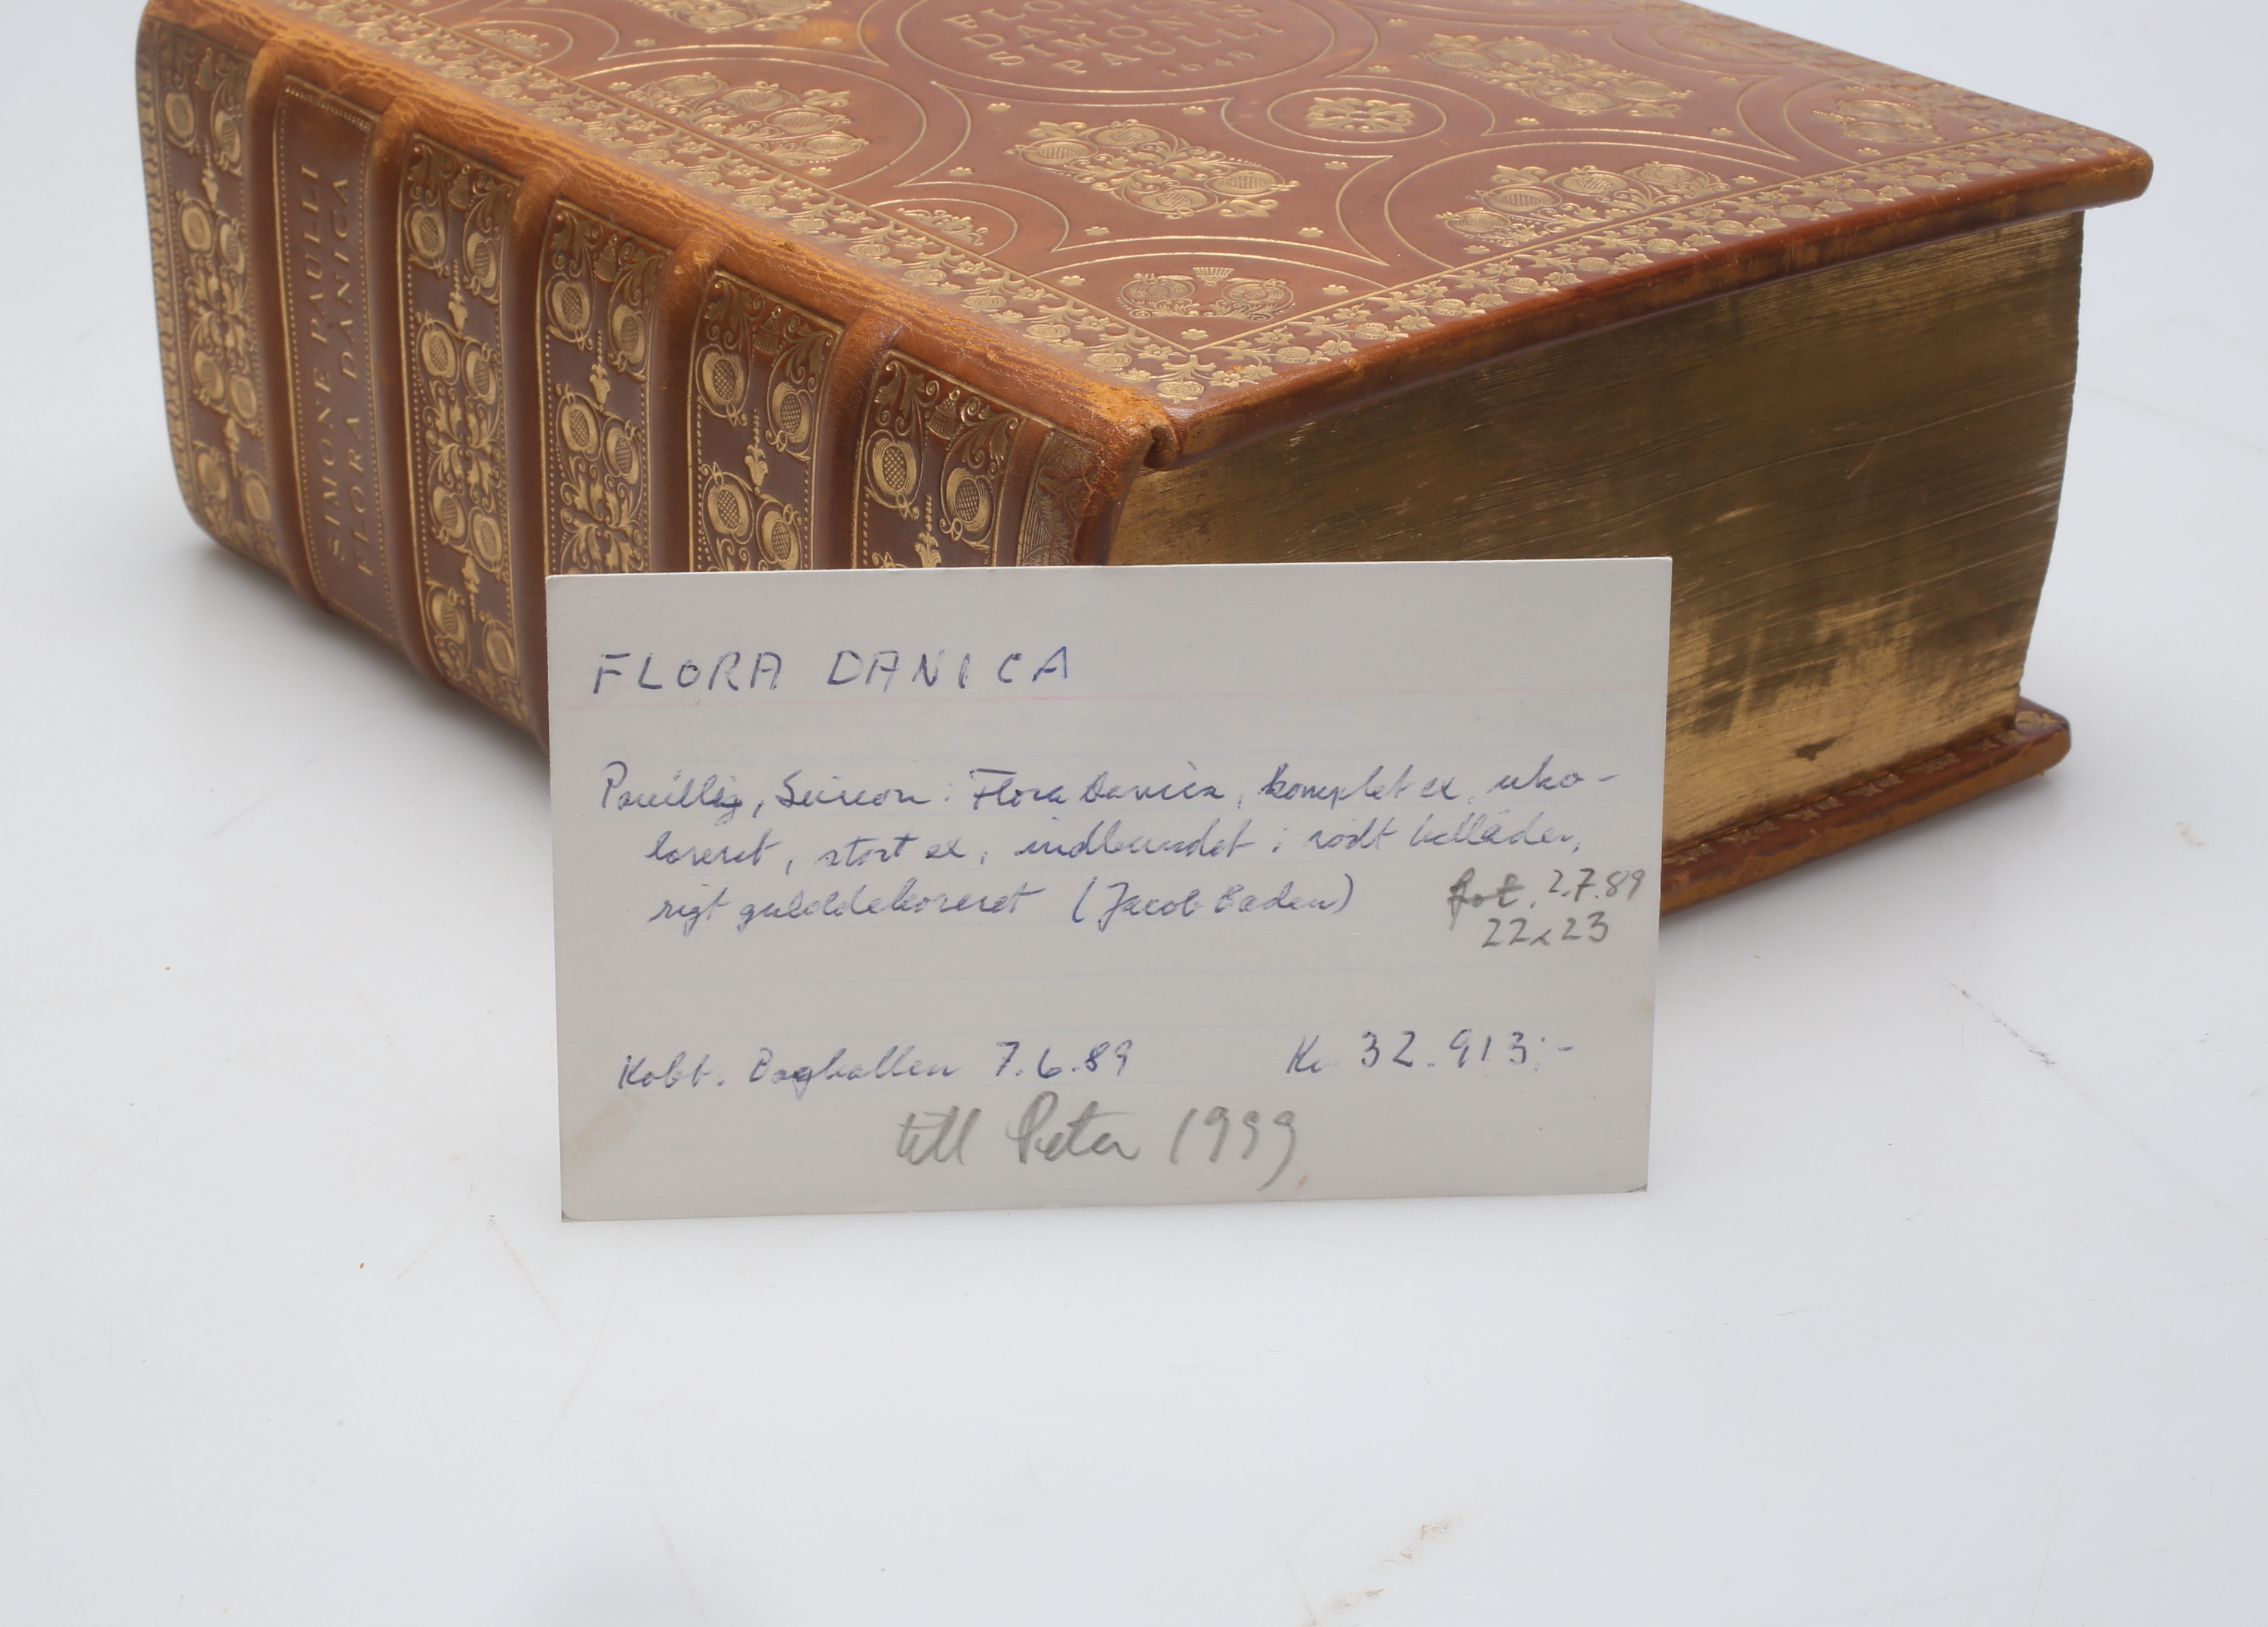 SIMONE PAULLI
FLORA DANICA
SIMO
PAULL
1648
FLORA DANICA
Paulli, Simon: Flora Danica, komplet ex, uko-
loreret, stort ex, indbundet i rödt helläder,
rigt gulddekoreret (Jacob Baden)
fot. 2.7.89
22x23
Köbt. Boghallen 7.6.89 Kr 32.913:-
till Peter 1999